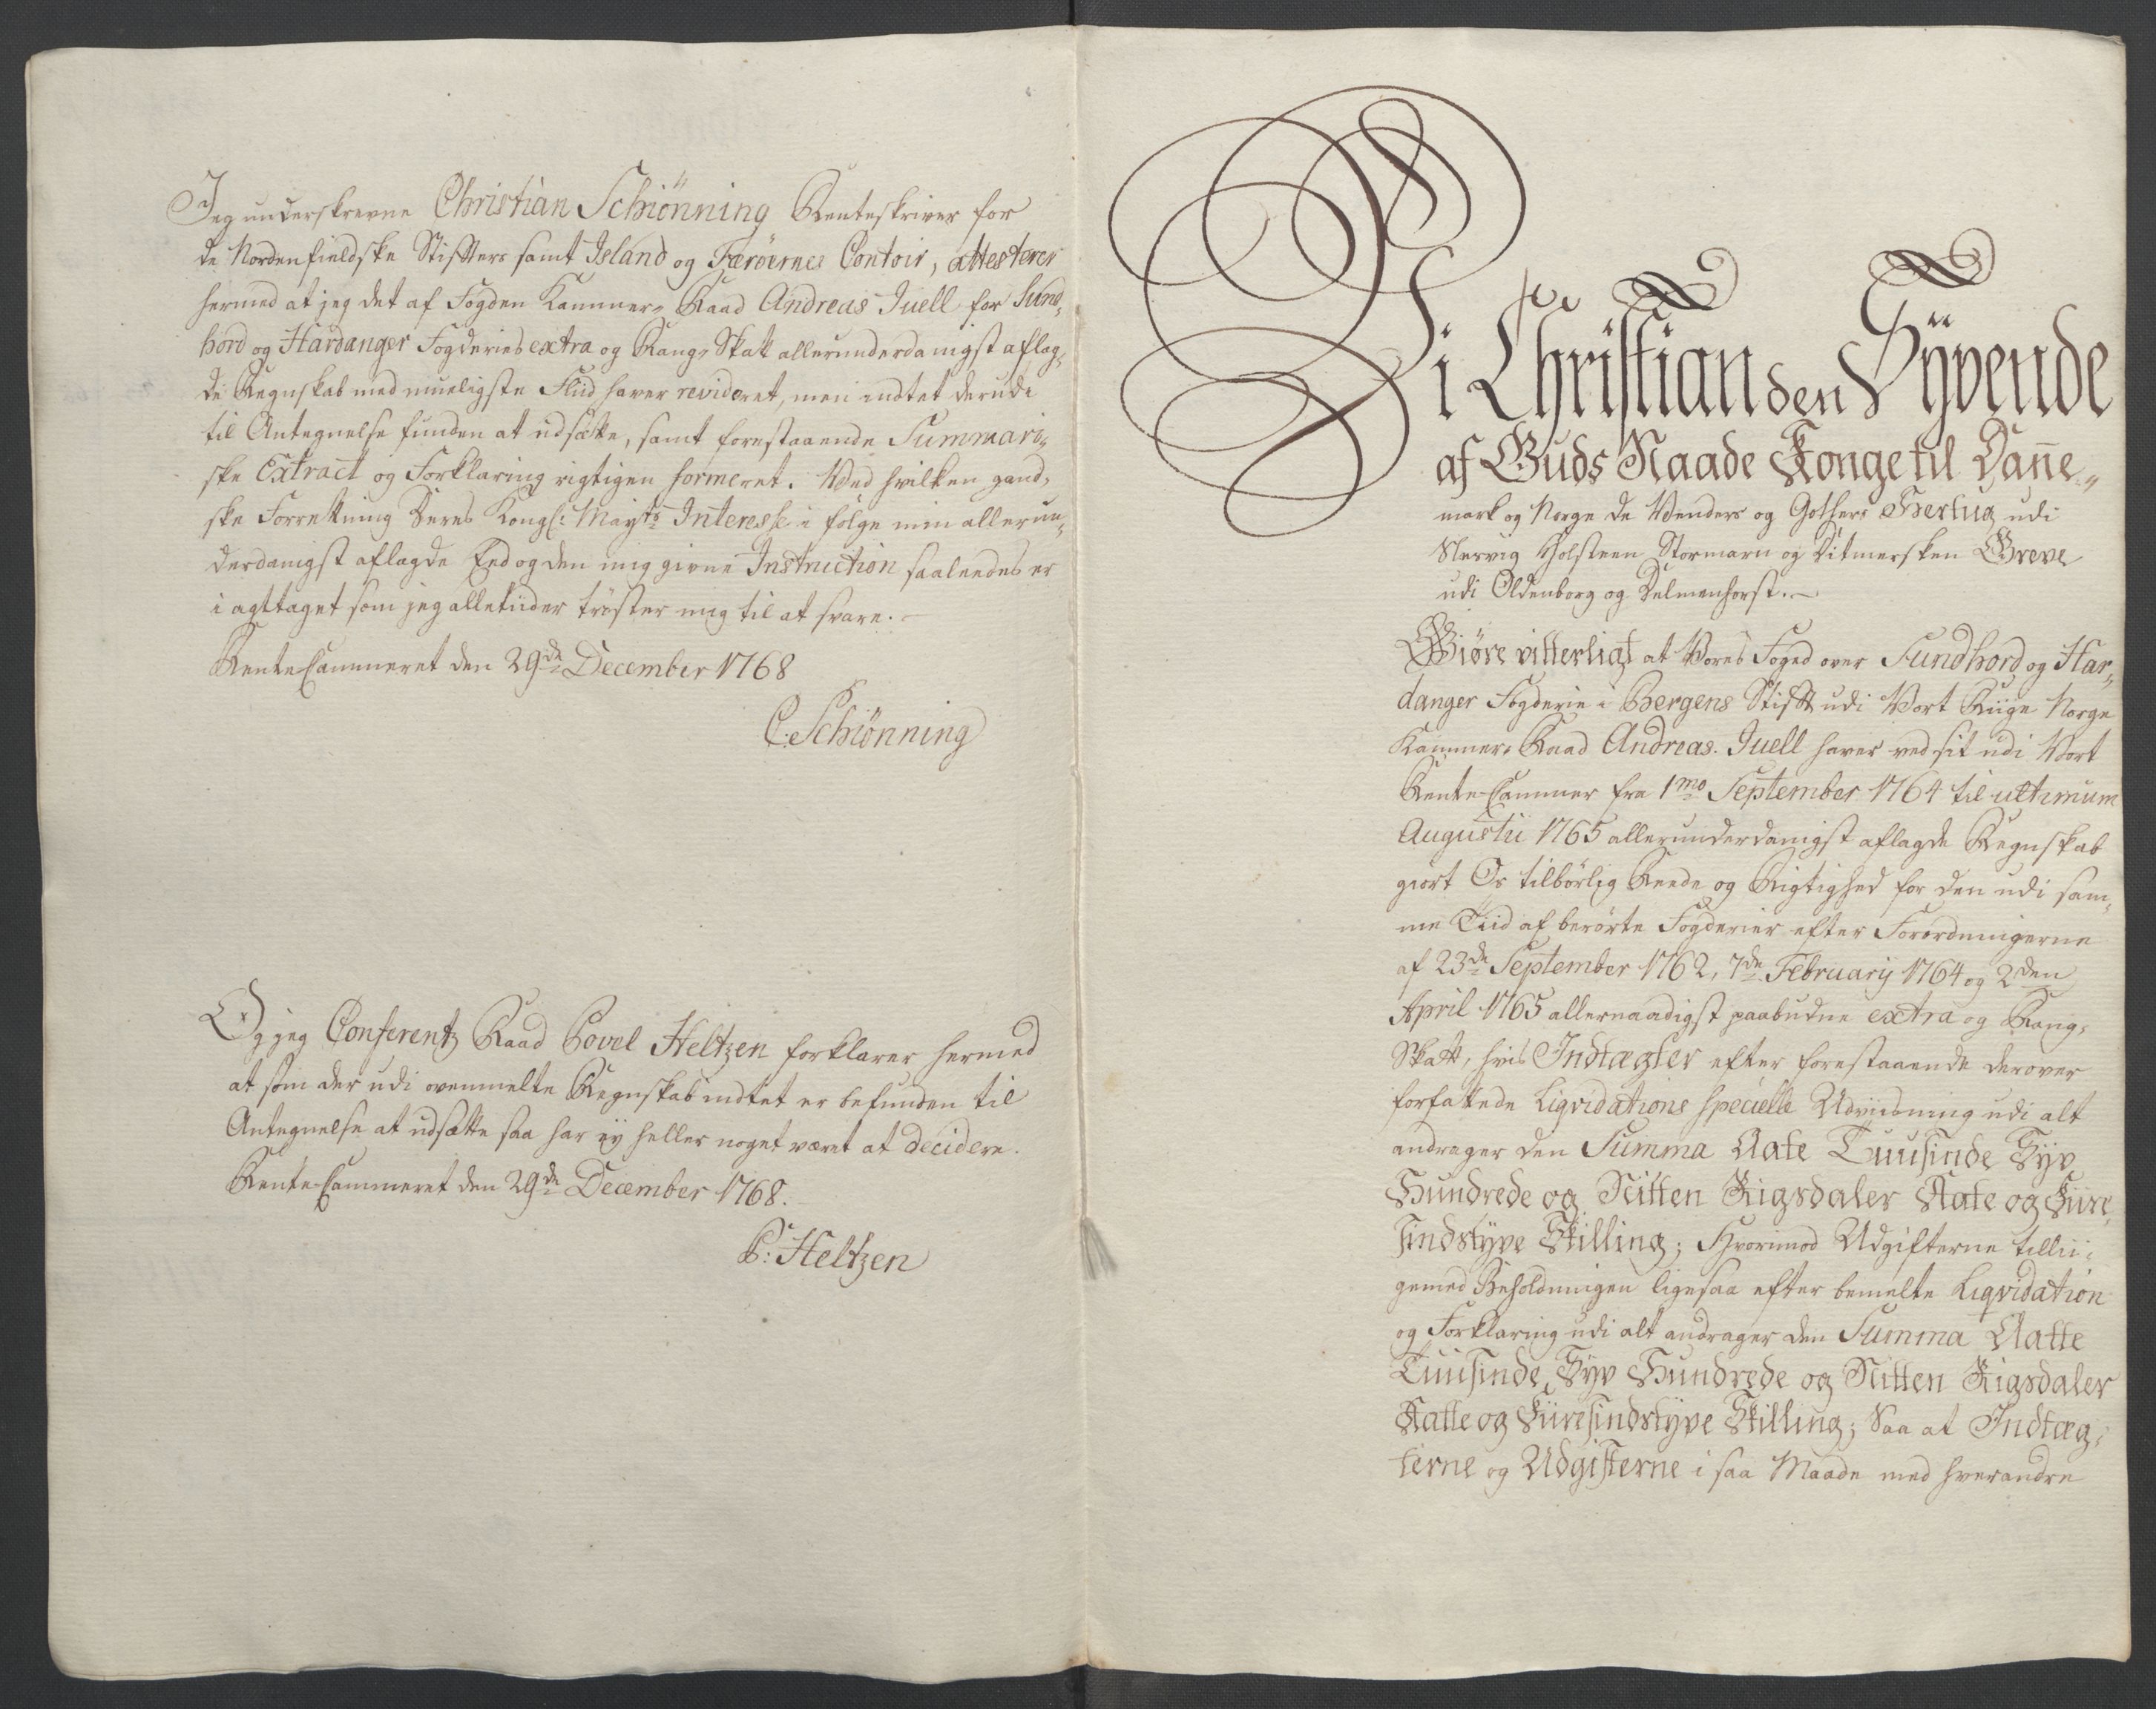 Jeg underskrevne Christian Schiönning Renteskriver for
de Nordenfieldske Stifters samt Island og Færöernes Contoir, attesterer
hermed at jeg det af Fogden Kammer-Raad Andreas Juell for Sund-
hord og Hardanger Fogderies extra og Rang-Skatt allerunderdanigst aflag-
de Regnskab med mueligste Fliid haver revideret, men indtet derudi
til Antegnelse funden at udsætte, samt forestaaende Summari-
ske Extract og Forklaring rigtigen formeret. Ved hvilken gand-
ske Forretning Deres Kongl: Mayts Interesse i følge min allerun-
derdanigst aflagde Eed og den mig givne Instruction saaledes er
i agttaget som jeg alletiider trøster mig til at svare.
Rente Cammeret den 29de December 1768
C. Schiönning
Og jeg Conferentz Raad Povel Heltzen forklarer hermed
at som der udi ovenmelte Regnskab indtet er befunden til
Antegnelse at udsætte saa har ey heller noget været at decidere.
Rente-Cammeret den 29de December 1768.
P: Heltzen
Vi Christian den Syvende
af Guds Naade Konge til Danne-
mark og Norge de Venders og Gothers Hertug udi
Slesvig Holsteen Stormarn og Ditmersken Greve
udi Oldenborg og Delmenhorst.
Giøre vitterligt at Vores Foged over Sundhord og Har-
danger Fogderie i Bergens Stift udi Vort Riige Norge
Kammer-Raad Andreas Juell haver ved sit udi Vort
Rente-Cammer fra 1mo September 1764 til ultimum
Augustii 1765 allerunderdanigst aflagde Regnskab
giort Os tilbørlig Reede og Rigtighed for den udi sam-
me Tiid af berørte Fogderier efter Forordningerne
af 23de September 1762, 7de February 1764 og 2den
April 1765 allernaadigst paabudne extra og Rang-
Skatt, hvis Indtægter efter forestaaende derover
forfattede Liqvidations specielle Udviisning udi alt
andrager den Summa Aate Tuusinde Syv
Hundrede og Nitten Rigsdaler Aate og Fiire-
sindstyve Skilling; Hvorimod Udgifterne tillii-
gemed Beholdningen ligesaa efter bemelte Liqvidation
og Forklaring udi alt andrager den Summa Aatte
Tuusinde, Syv Hundrede og Nitten Rigsdaler
Aatte og Fiiresindstyve Skilling; Saa at Indtæg-
terne og Udgifterne i saa Maade med hverandre